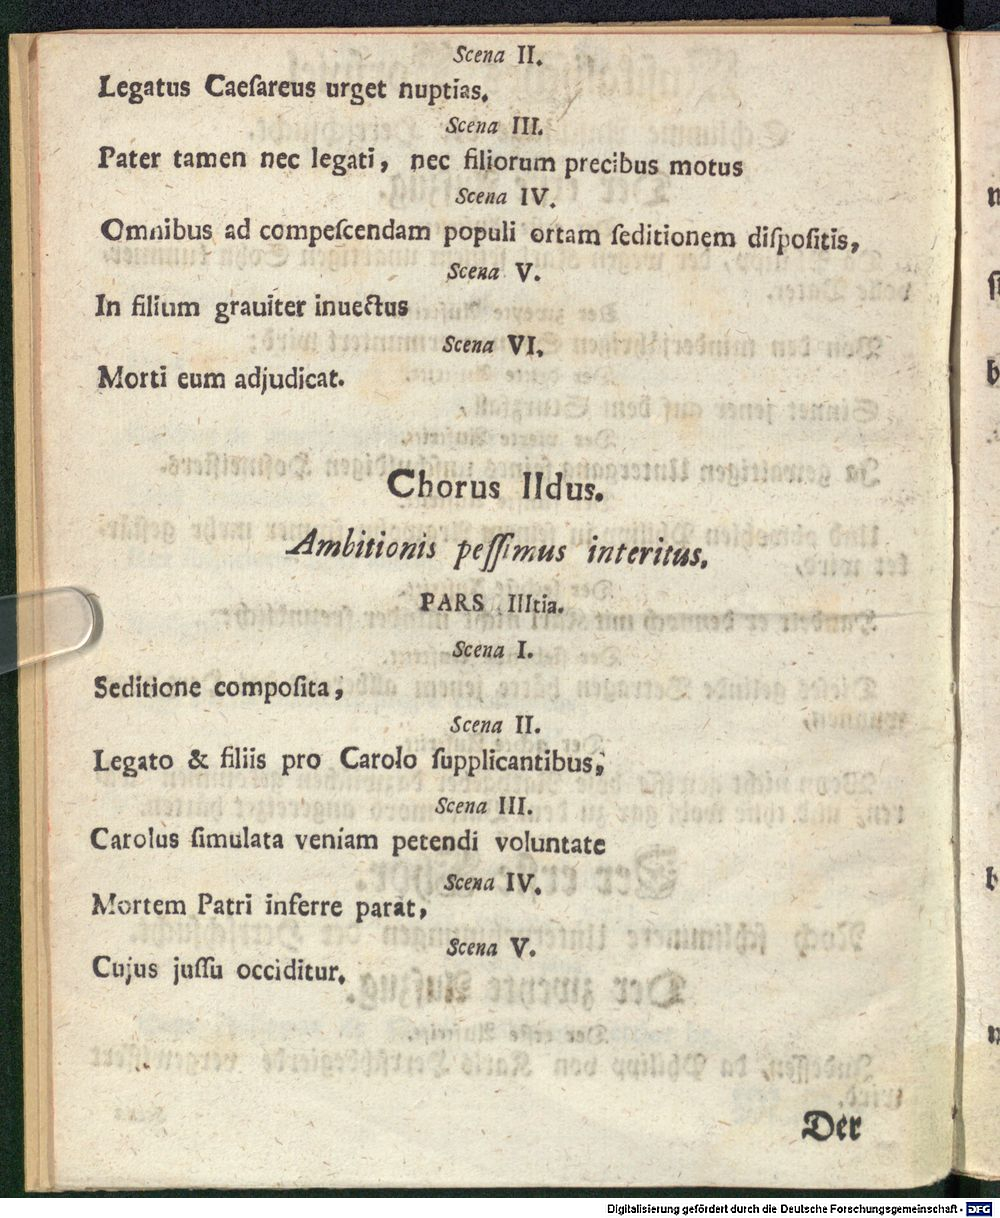 Scena II.
Legatus Caeſareus urget nuptias.
Scena III.
Pater tamen nec legati, nec filiorum precibus motus
Scena IV.
Omnibus ad compeſcendam populi ortam ſeditionem diſpoſitis,
Scena V.
In filium graviter inuectus
Scena VI.
Morti eum adjudicat.
Chorus IIdus.
Ambitionis peſſimus interitus.
PARS IIItia.
Scena I.
Seditione compoſita,
Scena II.
Legato & filiis pro Carolo ſupplicantibus,
Scena III.
Carolus ſimulata veniam petendi voluntate
Scena IV.
Mortem Patri inferre parat,
Scena V.
Cujus juſſu occiditur.
Der
Digitalisierung gefördert durch die Deutsche Forschungsgemeinschaft - DFG